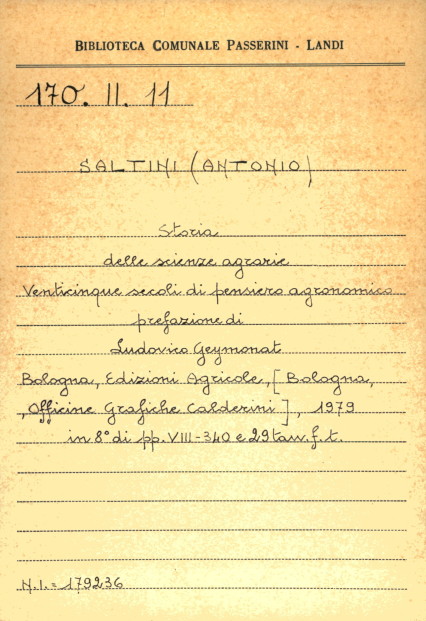 BIBLIOTECA COMUNALE PASSERINI - LANDI
170. II. 11
SALTINI (ANTONIO)
Storia
delle scienze agrarie
Venticinque secoli di pensiero agronomico
prefazione di
Ludovico Geymonat
Bologna, Edizioni Agricole, [Bologna,
, Officine Grafiche Calderini], 1979
in 8° di pp. VIII-340 e 29 tav. f. t.
N.I. = 179236